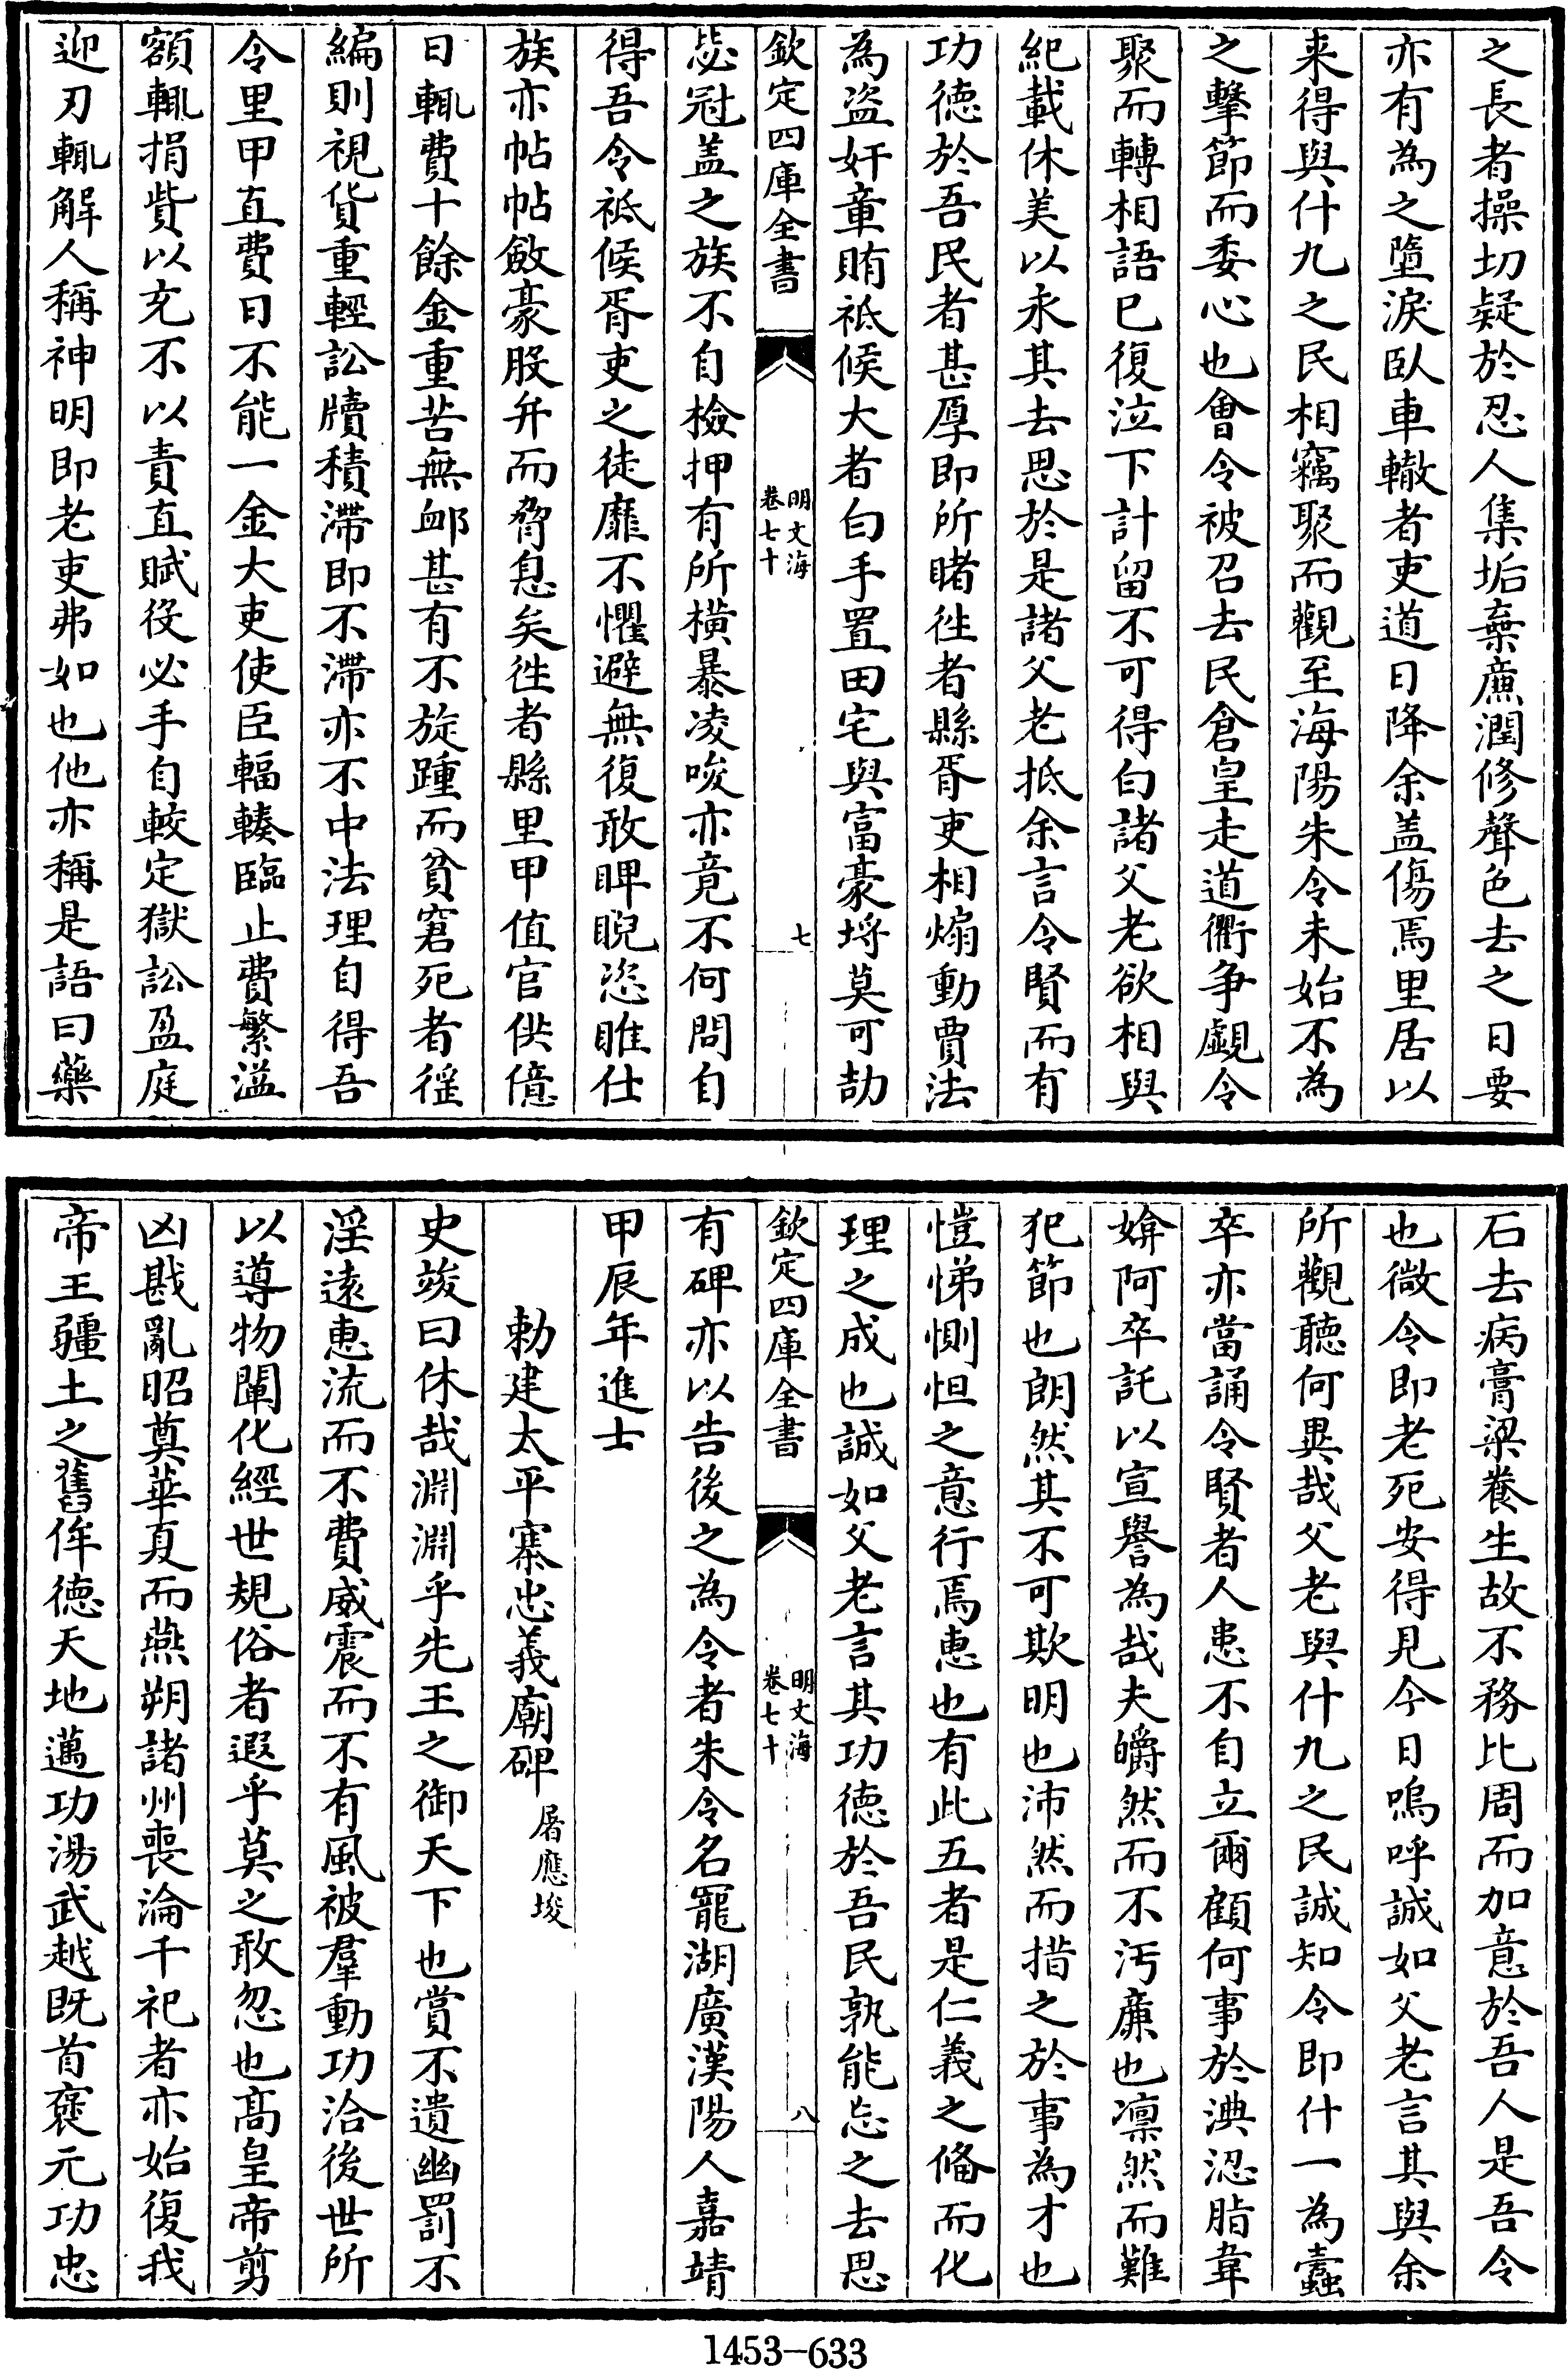 之長者操切疑於忍人集垢棄㢘潤修聲色去之日要
亦有為之墮淚臥車轍者吏道日降余盖傷焉里居以
来得與什九之民相竊聚而觀至海陽朱令未始不為
之擊節而委心也會令被召去民倉皇走道衢争覷令
聚而轉相語已復泣下計留不可得白諸父老欲相與
紀載休美以永其去思於是諸父老抵余言令賢而有
功徳於吾民者甚厚即所睹徃者縣胥吏相煽動賈法
為盗奸童賄祗候大者白手置田宅與富豪埒莫可劾
欽定四庫全書
明文海
卷七十
七
毖冠盖之族不自檢押有所橫暴凌唆亦竟不何問自
得吾令祗候胥吏之徒靡不懼避無復敢睥睨恣睢仕
族亦帖帖斂豪股弁而脅息矣徃者縣里甲值官供億
日輒費十餘金重苦無䘏甚有不旋踵而貧窘死者徭
編則視貨重輕訟牘積滯即不滯亦不中法理自得吾
令里甲直費日不能一金大吏使臣輻輳臨止費繁溢
額輒捐貲以充不以責直賦役必手自較定獄訟盈庭
迎刃輒解人稱神明即老吏弗如也他亦稱是語曰藥
石去病膏粱養生故不務比周而加意於吾人是吾令
也微令即老死安得見今日嗚呼誠如父老言其與余
所觀聽何異哉父老與什九之民誠知令即什一為蠧
卒亦當誦令賢者人患不自立爾顧何事於淟涊脂韋
媕阿卒託以宣譽為哉夫皭然而不汚亷也凛然而難
犯節也朗然其不可欺明也沛然而措之於事為才也
愷悌惻怛之意行焉恵也有此五者是仁義之偹而化
理之成也誠如父老言其功徳於吾民孰能忘之去思
欽定四庫全書
明文海
卷七十
八
有碑亦以告後之為令者朱令名寵湖廣漢陽人嘉靖
甲辰年進士
勅建太平寨忠義廟碑屠應埈
史竣曰休哉淵淵乎先王之御天下也賞不遺幽罰不
淫逺恵流而不費威震而不有風被羣動功洽後世所
以導物闡化經世規俗者遐乎莫之敢忽也髙皇帝剪
凶戡亂昭奠華夏而燕朔諸州喪淪千祀者亦始復我
帝王疆土之舊侔徳天地邁功湯武越既首褒元功忠
1453-633